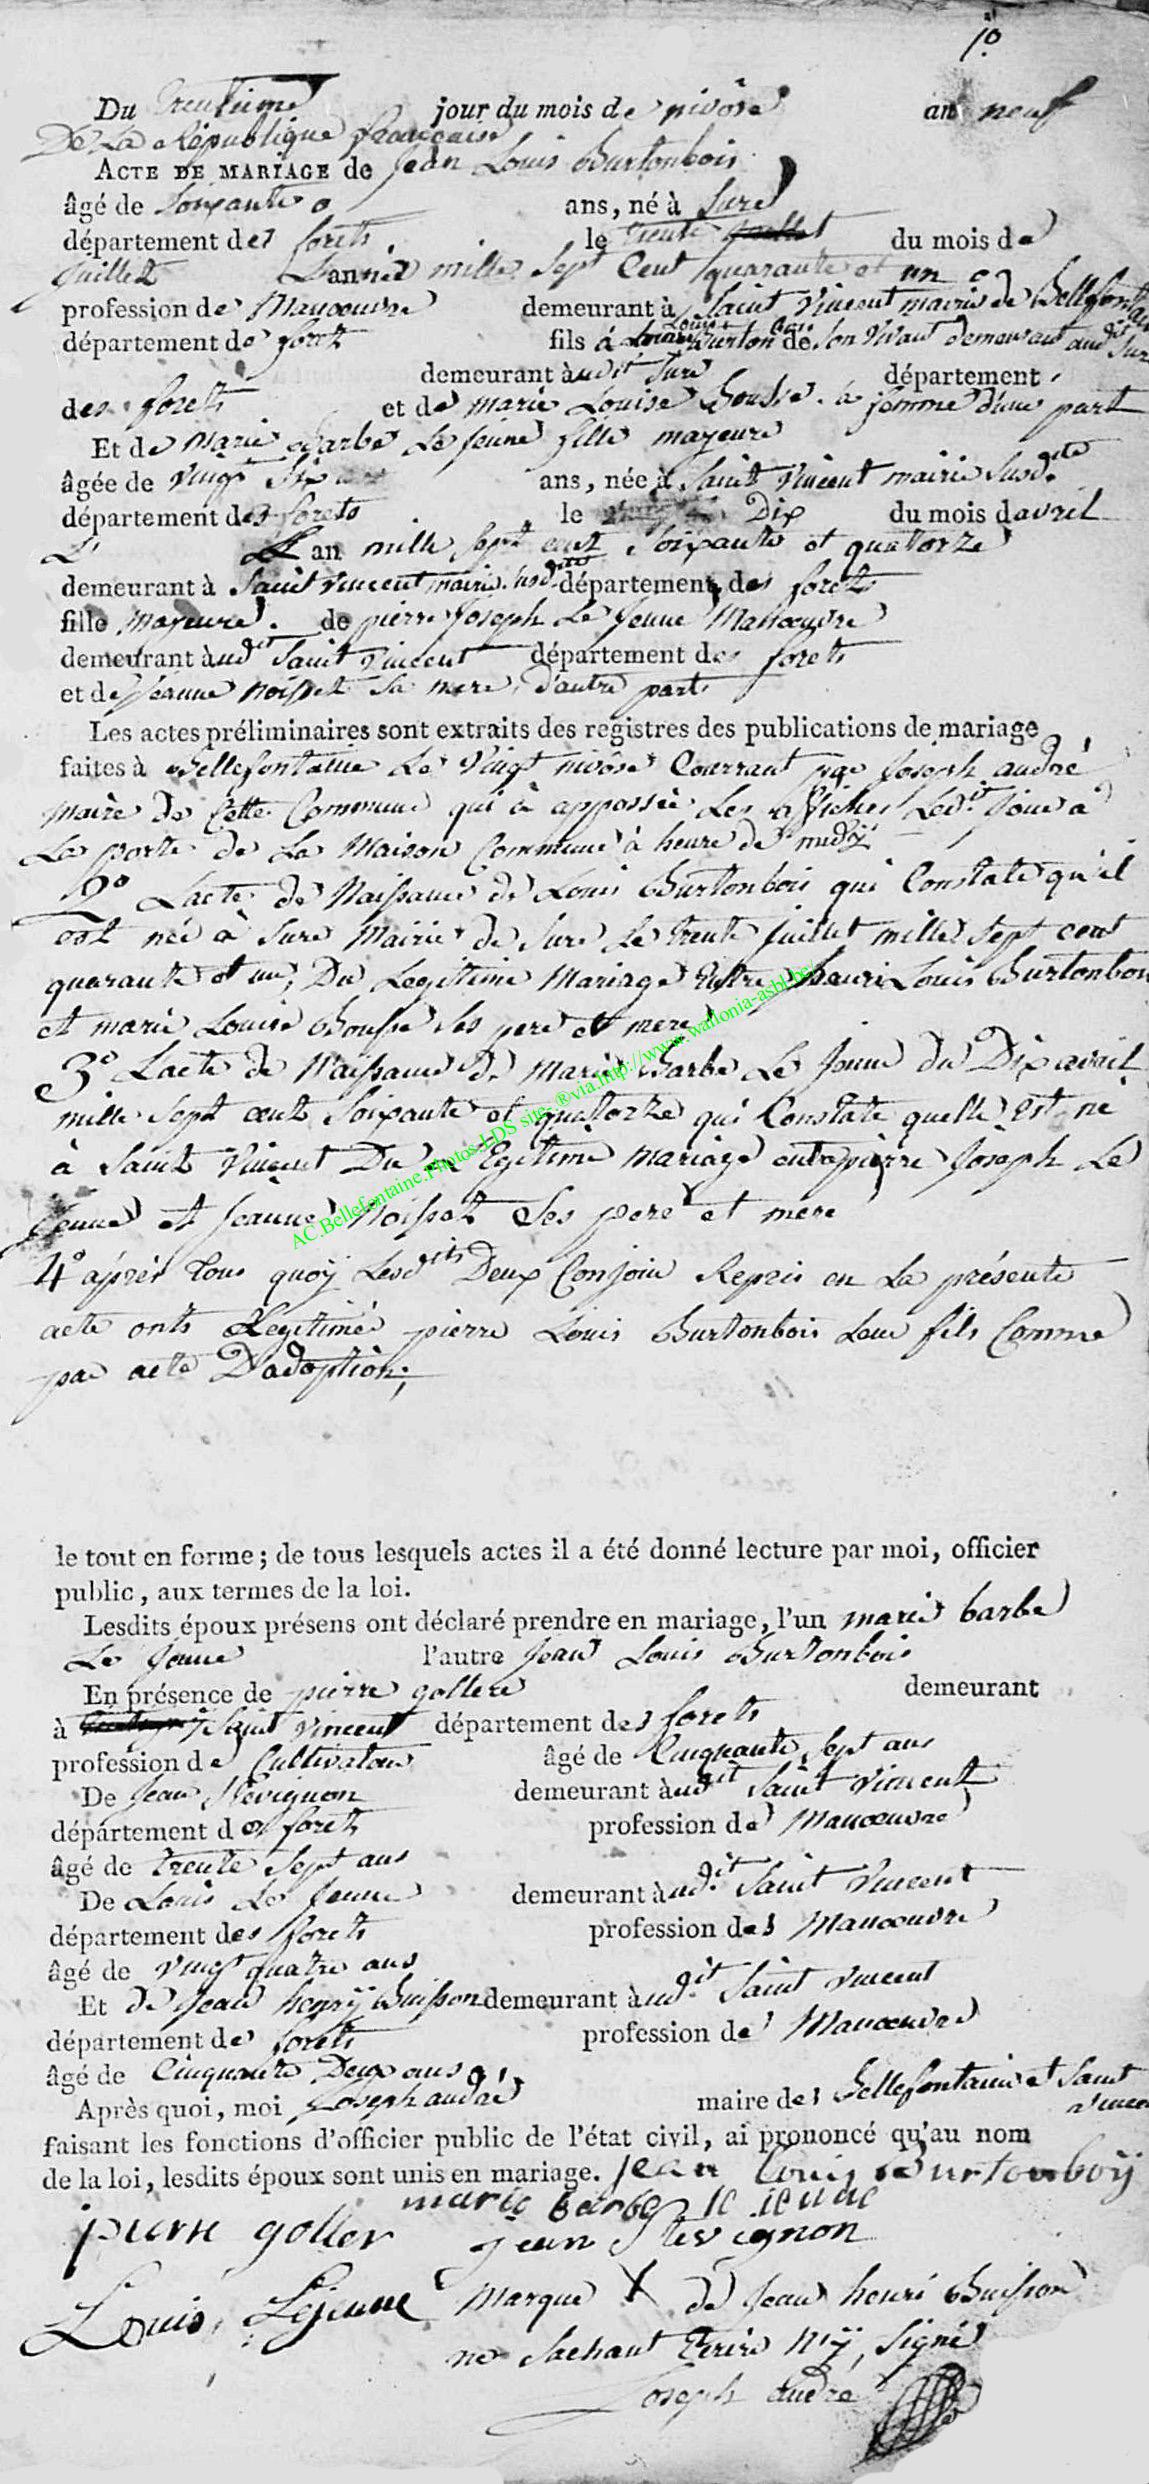 10
Du Trentieme jour du mois de nivôse an neuf
De La République française
ACTE DE MARIAGE de Jean Louis Burtonbois
âgé de Soixante ans, né à Sure
département des forets le trente du mois de
Juillet L'année mille Sept Cent quarante et un
profession de Manoeuvre demeurant à Saint Vincent mairie de Bellefontaine
département de forets fils à Louis Burton bois de Son Vivant demeurant audit Sure
demeurant audit Sure département
des forets et de marie Louise Bousse à femme d'une part
Et de Marie Barbe Le Jeune fille mayeure
âgée de vingt Six ans, née à Saint Vincent mairie Susdite
département des forets le Dix du mois d'avril
L'an mille Sept cent Soixante et quatorze
demeurant à Saint Vincent mairie susdite département des forets
fille mayeure de pierre Joseph Le Jeune Manoeuvre
demeurant audit Saint Vincent département des forets
et de Jeanne Noisset Sa mere, d'autre part
Les actes préliminaires sont extraits des registres des publications de mariage
faites à Bellefontaine Le Vingt nivôse Courrant par Joseph andré
maire de Cette Commune qui à appossée Les affiches Ledit Jour a
La porte de La Maison Commune à heure de midÿ
2° Lacte de Naissance de Louis Burtonbois qui Constate qu'il
est née à Sure Mairie de Sure Le trente Juillet mille Sept cent
quarante et un, Du Legitime Mariage Entre henri Louis Burtonbois
et marie Louise Bousse ses pere et mere
3° Lacte de Naissance de Marie Barbe Le Jeune du Dix avril
mille Sept cent Soixante et quattorze qui Constate quelle Est né
à Saint Vincent Du LEgitime Mariage entre pierre Joseph Le
Jeune et Jeanne Noisset Ses pere et mere
4° aprés Tous quoÿ Lesdits Deux Conjoin Repris en La présente
acte onts Legitimé pierre Louis Burtonbois Leur fils Comme
par acte D'adoption;
le tout en forme; de tous lesquels actes il a été donné lecture par moi, officier
public, aux termes de la loi.
Lesdits époux présens ont déclaré prendre en mariage, l'un marie barbe
Le Jeune l'autre Jean Louis Burtonbois
En présence de pierre gollere demeurant
à Saint Vincent département des forets
profession de Cultivateur âgé de Cinquante Sept ans
De Jean Stévignon demeurant audit Saint Vincent
département des forets profession de Manoeuvre
âgé de trente Sept ans
De Louis Le Jeune demeurant audit Saint Vincent
département des forets profession des Manoeuvre
âgé de vingt quatre ans
Et de Jean henrÿ Buisson demeurant audit Saint Vincent
département de forets profession de Manoeuvre
âgé de Cinquante Deux ans
Après quoi, moi Joseph andré maire des Bellefontaine et Saint Vincent
faisant les fonctions d'officier public de l'état civil, ai prononcé qu'au nom
de la loi, lesdits époux sont unis en mariage. Jean Louis Burtonboÿ
marie barbe le jeune
pierre goller Jean Stevignon
Louis, Lejeune Marque X de Jean henri Buisson
ne Sachant Ecrire nÿ Signé
Joseph andré
AC.Bellefontaine.Photos.LDS site-®via.http://www.wallonia-asbl.be/